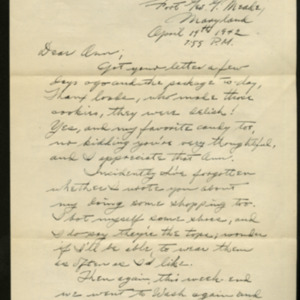 Fort Geo. G. Meade,
Maryland
April 19th, 1942
7:55 P.M.
Dear Ann,
Got your letter a few
days ago and the package to-day,
Thank looks, who made those
cookies, they were delish!
Yes, and my favorite candy too,
no kidding you're very thoughtful,
and I appreciate that Ann.
Incidently I've forgotten
whether I wrote you about
my doing some shopping too.
I bot myself some shoes, and
I do say they're the tops, wonder
if I'll be able to wear them
as often as I'd like.
Then again, this week end
we went to Wash again and